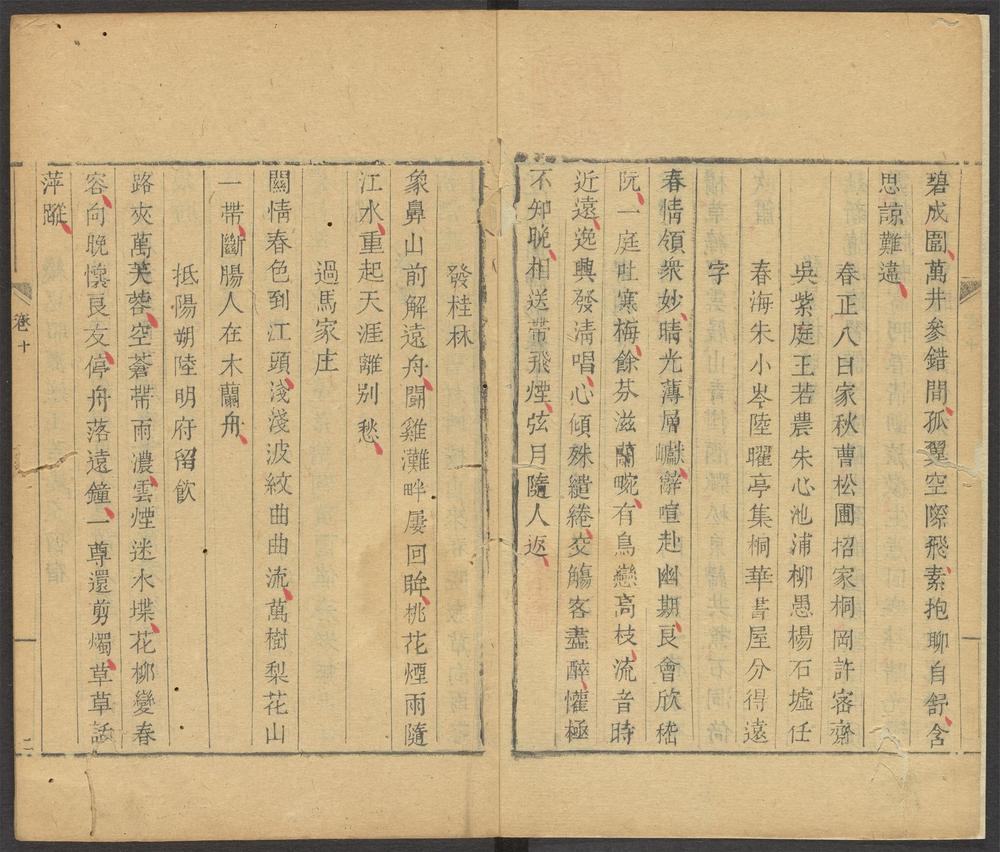 碧成圍萬井參錯間孤翼空際飛素抱聊自舒含
思諒難違
春正八日家秋曹松圃招家桐岡許密齋
吳紫庭王若農朱心池浦柳愚楊石墟任
春海朱小岑陸曜亭集桐華書屋分得遠
字
春情領衆妙晴光薄層巘辭喧赴幽期良會欣嵇
阮一庭吐寒梅餘芬滋蘭畹有鳥戀高枝流音時
近遠逸興發淸唱心傾殊繾綣交觴客盡醉懽極
不知晚相送帶飛煙弦月隨人返
發桂林
象鼻山前解遠舟鬬雞灘畔屢回眸桃花煙雨隨
江水重起天涯離別愁
過馬家庄
關情春色到江頭淺淺波紋曲曲流萬樹梨花山
一帶斷腸人在木蘭舟
抵陽朔陸明府留飮
路夾萬芙蓉空蒼帶雨濃雲煙迷水堞花柳變春
容向晚懷良友停舟落遠鐘一尊還剪燭草草話
萍蹤
卷十
二